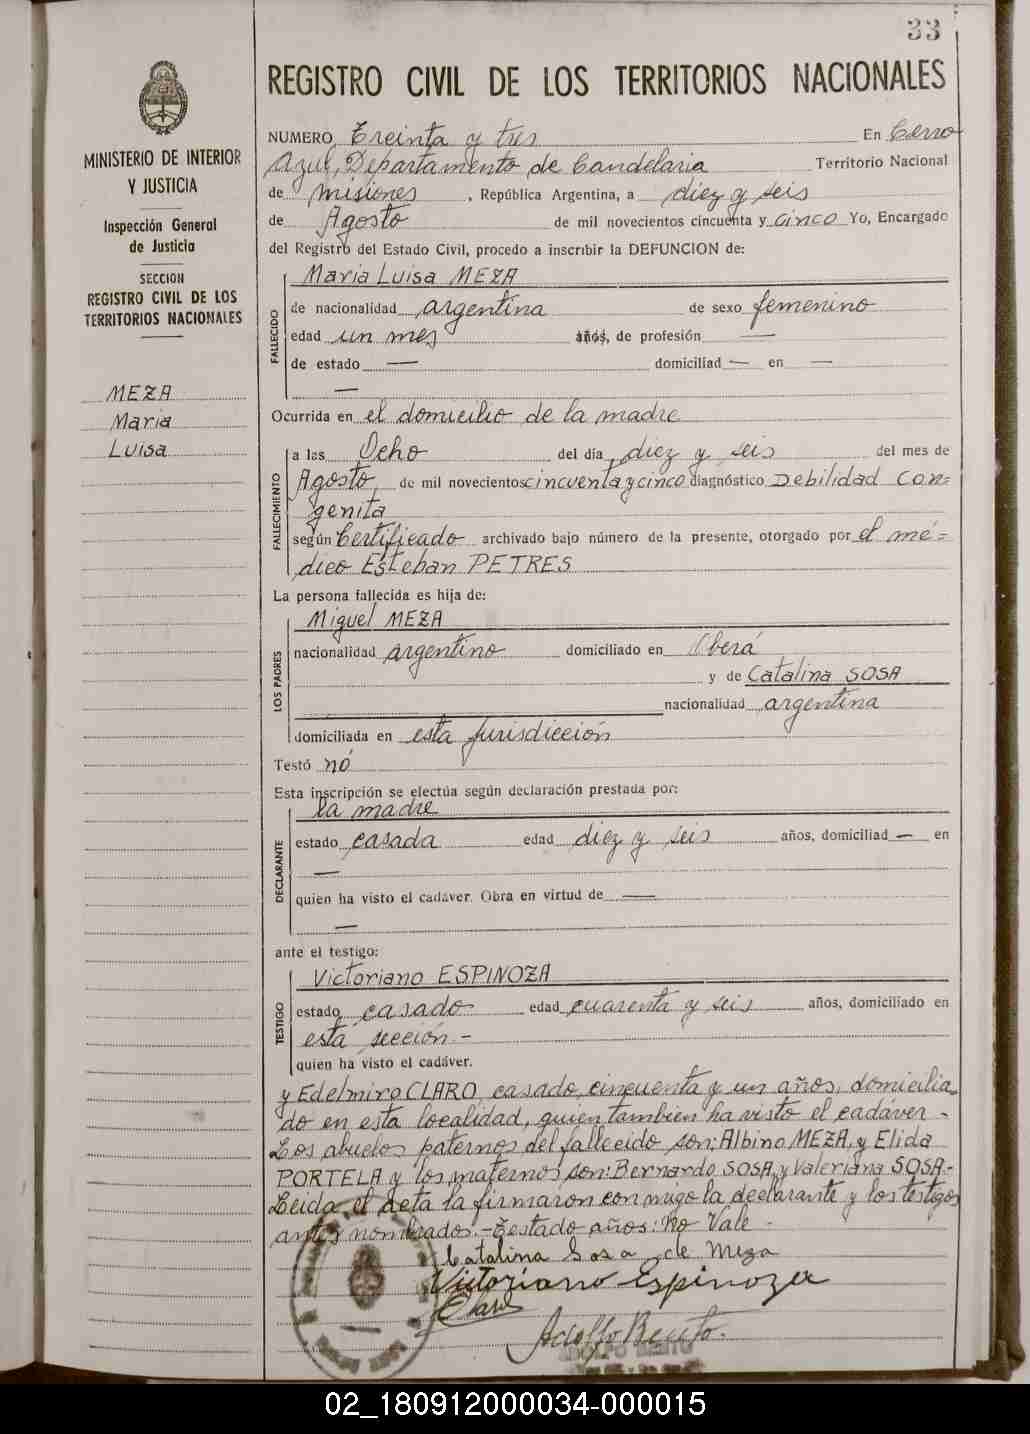 33
REGISTRO CIVIL DE LOS TERRITORIOS NACIONALES
MINISTERIO DE INTERIOR
Y JUSTICIA
Inspección General
de Justicia
SECCION
REGISTRO CIVIL DE LOS
TERRITORIOS NACIONALES
MEZA
Maria
Luisa
NUMERO Treinta y tres En Cerro
Azul, Departamento de Candelaria Territorio Nacional
de misiones , República Argentina, a diez y seis
de Agosto de mil novecientos cincuenta y cinco Yo, Encargado
del Registro del Estado Civil, procedo a inscribir la DEFUNCION de:
FALLECIDO
Maria Luisa MEZA
de nacionalidad argentina de sexo femenino
edad un mes años, de profesión —
de estado — domiciliad — en —
—
Ocurrida en el domicilio de la madre
FALLECIMIENTO
a las Ocho del día diez y seis del mes de
Agosto, de mil novecientos cincuenta y cinco diagnóstico Debilidad Con=
genita
según Certificado archivado bajo número de la presente, otorgado por el mé=
dico Esteban PETRES
La persona fallecida es hija de:
LOS PADRES
Miguel MEZA
nacionalidad argentino domiciliado en Oberá
y de Catalina SOSA
nacionalidad argentina
domiciliada en esta jurisdicción
Testó nó
Esta inscripción se efectúa según declaración prestada por:
DECLARANTE
la madre
estado casada edad diez y seis años, domiciliad — en
—
quien ha visto el cadáver. Obra en virtud de —
—
ante el testigo:
TESTIGO
Victoriano ESPINOZA
estado casado edad cuarenta y seis años, domiciliado en
esta sección.-
quien ha visto el cadáver.
y Edelmiro CLARO, casado, cincuenta y un años, domicilia
do en esta localidad, quien tambien ha visto el cadáver -
Los abuelos paternos del fallecido son: Albino MEZA, y Elida
PORTELA y los maternos son: Bernardo SOSA y Valeriana SOSA.-
Leida el acta la firmaron conmigo la declarante y los testigos
antes nombrados.- Testado años: No Vale -
Catalina Sosa de Meza
Victoriano Espinoza
Claro
Adolfo Benito.
02_180912000034-000015